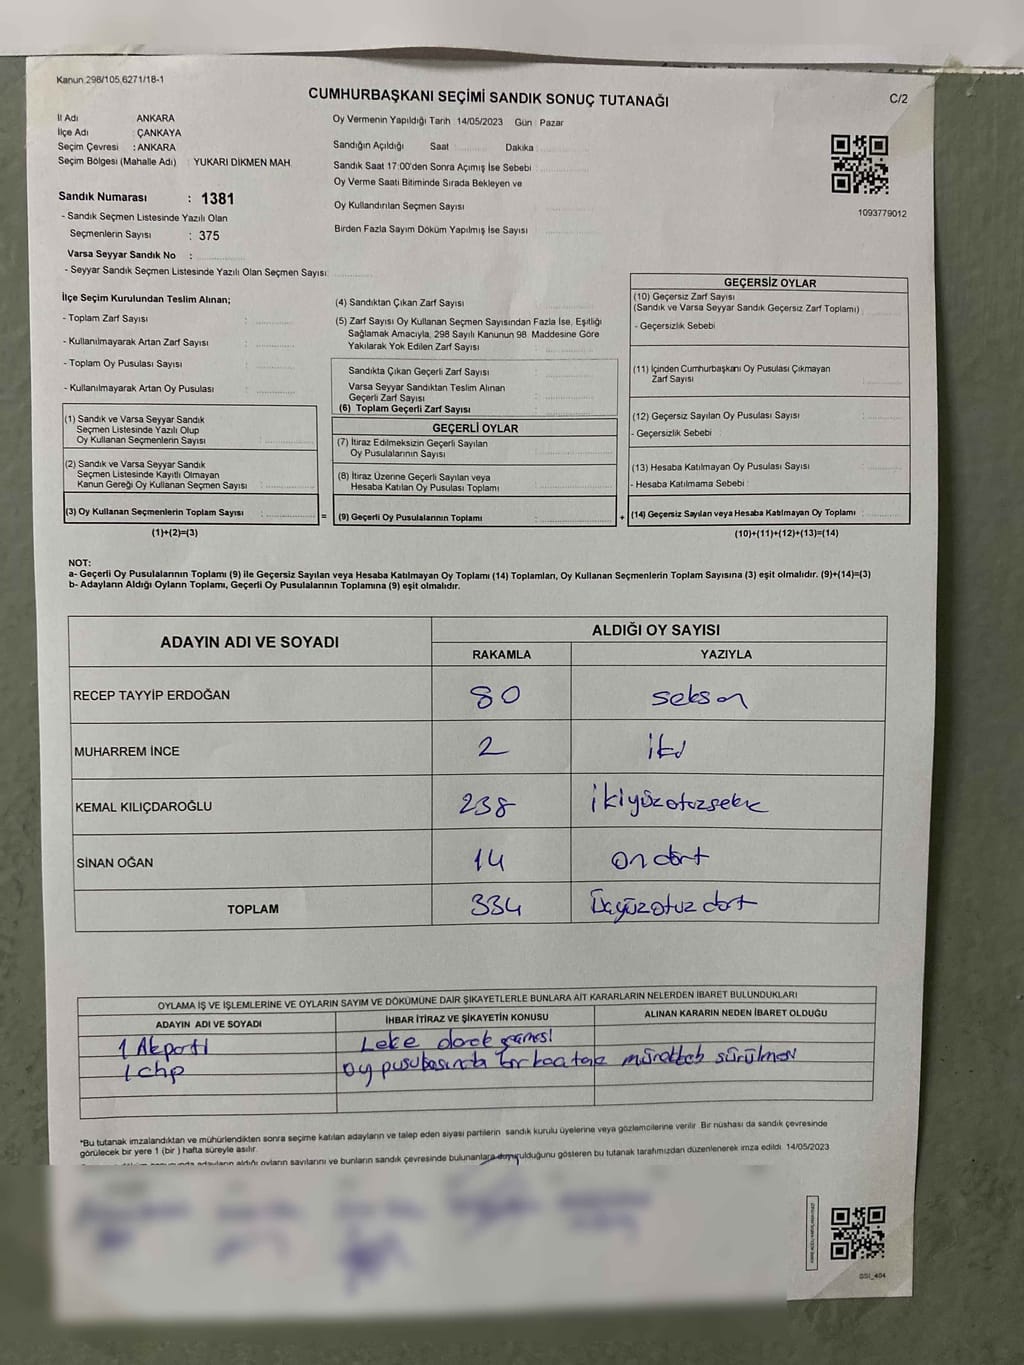 Kanun 298/105,6271/18-1
CUMHURBAŞKANI SEÇİMİ SANDIK SONUÇ TUTANAĞI
C/2
İl Adı ANKARA
İlçe Adı : ÇANKAYA
Seçim Çevresi : ANKARA
Seçim Bölgesi (Mahalle Adı) : YUKARI DİKMEN MAH.
Oy Vermenin Yapıldığı Tarih 14/05/2023 Gün : Pazar
Sandığın Açıldığı Saat Dakika
Sandık Saat 17:00'den Sonra Açımış İse Sebebi
Oy Verme Saati Bitiminde Sırada Bekleyen ve
Oy Kullandırılan Seçmen Sayısı
Birden Fazla Sayım Döküm Yapılmış İse Sayısı
1093779012
Sandık Numarası : 1381
- Sandık Seçmen Listesinde Yazılı Olan
Seçmenlerin Sayısı : 375
Varsa Seyyar Sandık No :
- Seyyar Sandık Seçmen Listesinde Yazılı Olan Seçmen Sayısı
İlçe Seçim Kurulundan Teslim Alınan;
- Toplam Zarf Sayısı :
- Kullanılmayarak Artan Zarf Sayısı :
- Toplam Oy Pusulası Sayısı :
- Kullanılmayarak Artan Oy Pusulası :
(1) Sandık ve Varsa Seyyar Sandık
Seçmen Listesinde Yazılı Olup
Oy Kullanan Seçmenlerin Sayısı :
(2) Sandık ve Varsa Seyyar Sandık
Seçmen Listesinde Kayıtlı Olmayan
Kanun Gereği Oy Kullanan Seçmen Sayısı :
(3) Oy Kullanan Seçmenlerin Toplam Sayısı :
(1)+(2)=(3)
(4) Sandıktan Çıkan Zarf Sayısı
(5) Zarf Sayısı Oy Kullanan Seçmen Sayısından Fazla İse, Eşitliği
Sağlamak Amacıyla, 298 Sayılı Kanunun 98. Maddesine Göre
Yakılarak Yok Edilen Zarf Sayısı :
Sandıkta Çıkan Geçerli Zarf Sayısı :
Varsa Seyyar Sandıktan Teslim Alınan
Geçerli Zarf Sayısı
(6) Toplam Geçerli Zarf Sayısı :
GEÇERLİ OYLAR
(7) İtiraz Edilmeksizin Geçerli Sayılan
Oy Pusulalarının Sayısı :
(8) İtiraz Üzerine Geçerli Sayılan veya
Hesaba Katılan Oy Pusulası Toplamı :
=
(9) Geçerli Oy Pusulalarının Toplamı :
+
GEÇERSİZ OYLAR
(10) Geçersiz Zarf Sayısı
(Sandık ve Varsa Seyyar Sandık Geçersiz Zarf Toplamı)
- Geçersizlik Sebebi :
(11) İçinden Cumhurbaşkanı Oy Pusulası Çıkmayan
Zarf Sayısı
(12) Geçersiz Sayılan Oy Pusulası Sayısı :
- Geçersizlik Sebebi :
(13) Hesaba Katılmayan Oy Pusulası Sayısı :
- Hesaba Katılmama Sebebi :
(14) Geçersiz Sayılan veya Hesaba Katılmayan Oy Toplamı :
(10)+(11)+(12)+(13)=(14)
NOT:
a- Geçerli Oy Pusulalarının Toplamı (9) ile Geçersiz Sayılan veya Hesaba Katılmayan Oy Toplamı (14) Toplamları, Oy Kullanan Seçmenlerin Toplam Sayısına (3) eşit olmalıdır. (9)+(14)=(3)
b- Adayların Aldığı Oyların Toplamı, Geçerli Oy Pusulalarının Toplamına (9) eşit olmalıdır.
ADAYIN ADI VE SOYADI
ALDIĞI OY SAYISI
RAKAMLA YAZIYLA
RECEP TAYYİP ERDOĞAN 80 seksen
MUHARREM İNCE 2 iki
KEMAL KILIÇDAROĞLU 238 ikiyüzotuzsekiz
SİNAN OĞAN 14 on dört
TOPLAM 334 Üçyüzotuz dört
OYLAMA İŞ VE İŞLEMLERİNE VE OYLARIN SAYIM VE DÖKÜMÜNE DAİR ŞİKAYETLERLE BUNLARA AİT KARARLARIN NELERDEN İBARET BULUNDUKLARI
ADAYIN ADI VE SOYADI İHBAR İTİRAZ VE ŞİKAYETİN KONUSU ALINAN KARARIN NEDEN İBARET OLDUĞU
1 Akparti Leke
1 chp oy pusulasında mürekkeb
*Bu tutanak imzalandıktan ve mühürlendikten sonra seçime katılan adayların ve talep eden siyasi partilerin sandık kurulu üyelerine veya gözlemcilerine verilir. Bir nüshası da sandık çevresinde
görülecek bir yere 1 (bir ) hafta süreyle asılır.
adayların aldığı oyların sayılarını ve bunların sandık çevresinde bulunanlara duyurulduğunu gösteren bu tutanak tarafımızdan düzenlenerek imza edildi. 14/05/2023